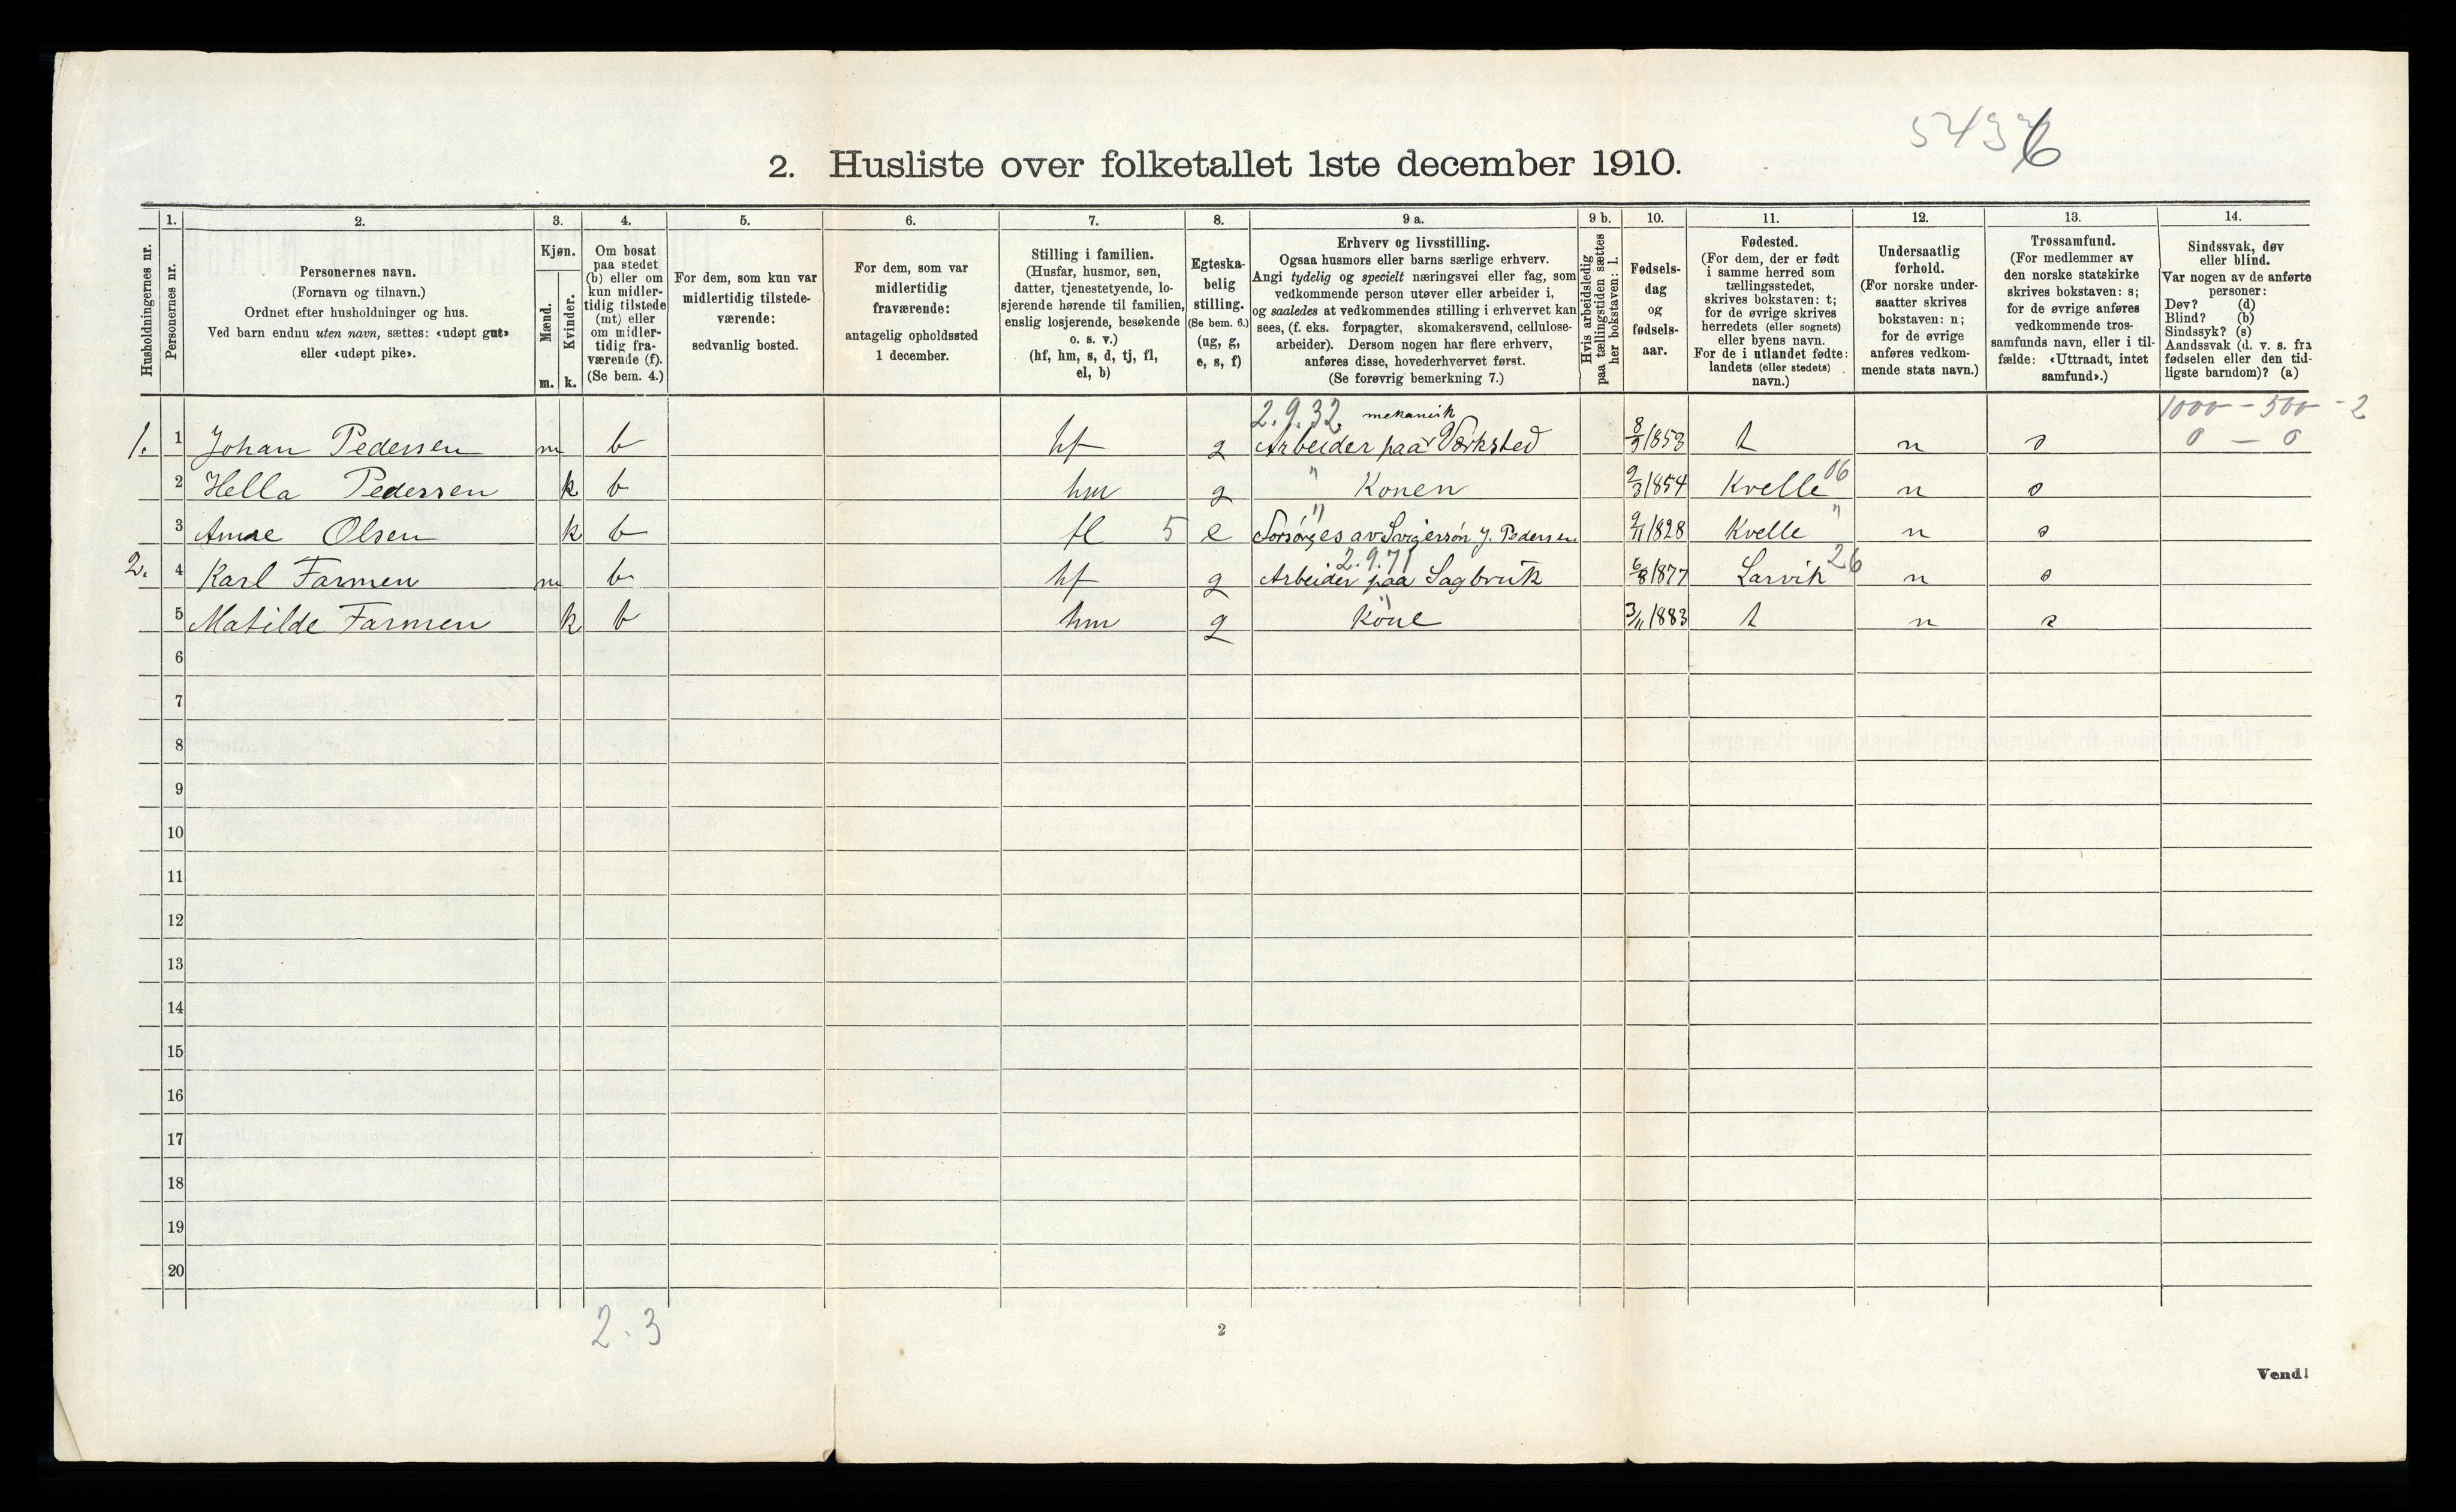 5436
2. Husliste over folketallet 1ste december 1910.
Husholdningernes nr.
1. Personernes nr.
2. Personernes navn. (Fornavn og tilnavn.) Ordnet efter husholdninger og hus. Ved barn endnu uten navn, sættes: «udøpt gut» eller «udøpt pike».
3. Kjøn. Mænd. m. Kvinder. k.
4. Om bosat paa stedet (b) eller om kun midler-tidig tilstede (mt) eller om midler-tidig fra-værende (f). (Se bem. 4.)
5. For dem, som kun var midlertidig tilstede-værende: sedvanlig bosted.
6. For dem, som var midlertidig fraværende: antagelig opholdssted 1 december.
7. Stilling i familien. (Husfar, husmor, søn, datter, tjenestetyende, lo-sjerende hørende til familien, enslig losjerende, besøkende o. s. v.) (hf, hm, s, d, tj, fl, el, b)
8. Egteska-belig stilling. (Se bem. 6.) (ug, g, e, s, f)
9 a. Erhverv og livsstilling. Ogsaa husmors eller barns særlige erhverv. Angi tydelig og specielt næringsvei eller fag, som vedkommende person utøver eller arbeider i, og saaledes at vedkommendes stilling i erhvervet kan sees, (f. eks. forpagter, skomakersvend, cellulose-arbeider). Dersom nogen har flere erhverv, anføres disse, hovederhvervet først. (Se forøvrig bemerkning 7.)
9 b. Hvis arbeidsledig paa tællingstiden sættes her bokstaven: l.
10. Fødsels-dag og fødsels-aar.
11. Fødested. (For dem, der er født i samme herred som tællingsstedet, skrives bokstaven: t; for de øvrige skrives herredets (eller sognets) eller byens navn. For de i utlandet fødte: landets (eller stedets) navn.)
12. Undersaatlig forhold. (For norske under-saatter skrives bokstaven: n; for de øvrige anføres vedkom-mende stats navn.)
13. Trossamfund. (For medlemmer av den norske statskirke skrives bokstaven: s; for de øvrige anføres vedkommende tros-samfunds navn, eller i til-fælde: «Uttraadt, intet samfund».)
14. Sindssvak, døv eller blind. Var nogen av de anførte personer: Døv? (d) Blind? (b) Sindssyk? (s) Aandssvak (d. v. s. fra fødselen eller den tid-ligste barndom)? (a)
2.9.32 mekanisk 1000 - 500 - 2
1. 1 Johan Pedersen m b hf g Arbeider paa Værksted 8/9 1853 t n s 0 - 0
2 Hella Pedersen k b hm g " Konen 2/3 1854 Kvelle 06 n s
3 Anne Olsen k b fl 5 e " Forsørges av Svigersøn J. Pedersen 9/11 1828 Kvelle " n s
2.9.71
2. 4 Karl Farmen m b hf g Arbeider paa Sagbruk 6/8 1877 Larvik 26 n s
5 Matilde Farmen k b hm g " Kone 3/11 1883 t n s
6
7
8
9
10
11
12
13
14
15
16
17
18
19
20
2.3
2
Vend!